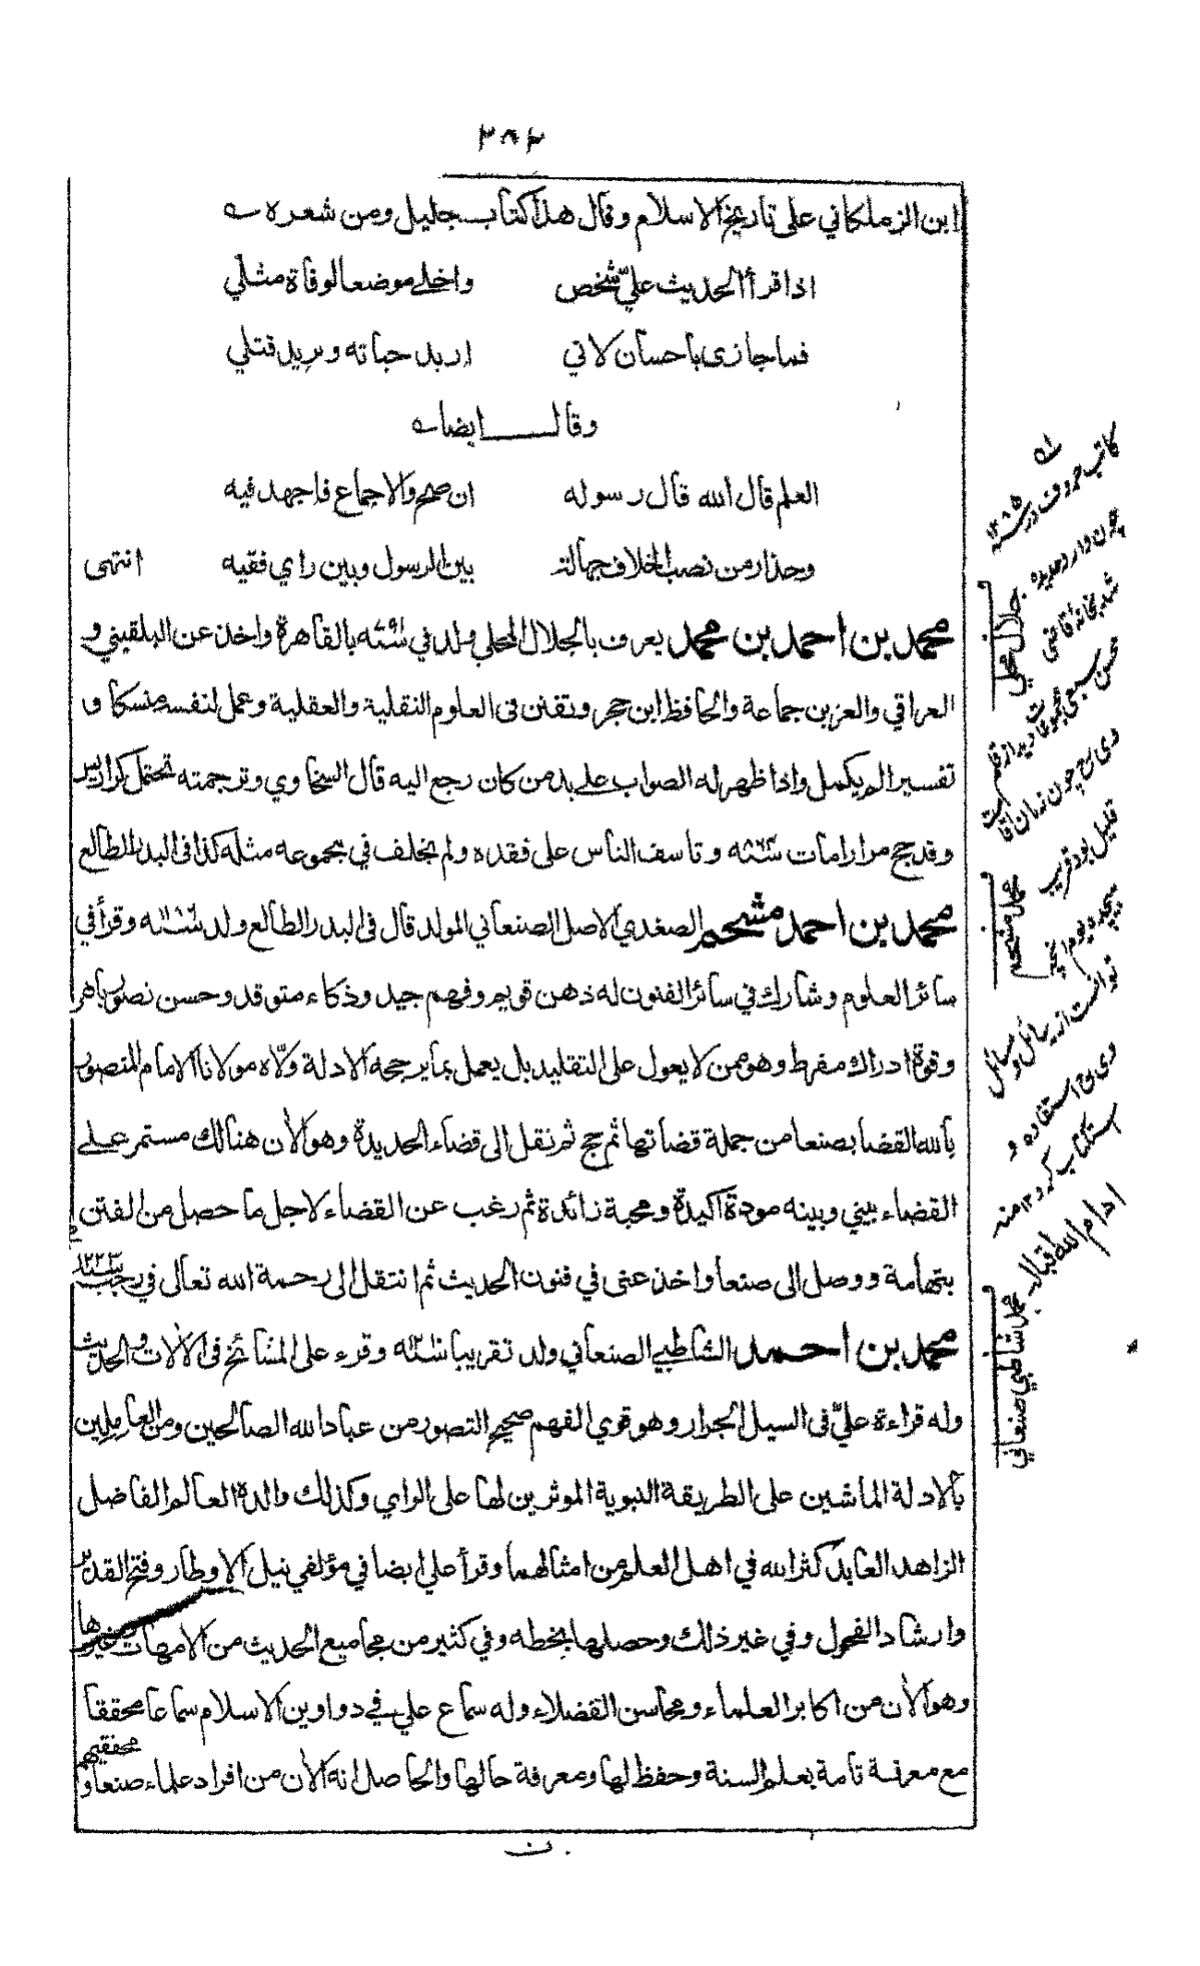 ٣٨٢
ابن الزملكاني على تاريخ الاسلام وقال هذا كتاب جليل ومن شعره
اذا قرأ الحديث عليّ شخص واخلى موضعا لوفاة مثلي
فما جازى باحسان لاني اريد حياته ويريد قتلي
وقال ايضا
العلم قال الله قال رسوله ان صح والاجماع فاجهد فيه
وحذار من نصب الخلاف جهالة بين الرسول وبين راي فقيه انتهى
محمد بن احمد بن محمد يعرف بالجلال المحلي ولد في بالقاهرة واخذ عن البلقيني و
العراقي والعز بن جماعة والحافظ ابن حجر وتفنن فى العلوم النقلية والعقلية وعمل لنفسه منسكا و
تفسيرا لم يكمل واذا ظهر له الصواب على يد من كان رجع اليه قال السخاوي وترجمته تحتمل كراريس
وقد حج مرارا مات وتاسف الناس على فقده ولم يخلف في مجموعه مثله كذا فى البدر الطالع
محمد بن احمد مشحم الصعدي الاصل الصنعاني المولد قال فى البدر الطالع ولد وقرأ في
سائر العلوم وشارك في سائر الفنون له ذهن قويم وفهم جيد وذكاء متوقد وحسن تصور باهر
وقوة ادراك مفرط وهو ممن لا يعول على التقليد بل يعمل بما يرجحه الادلة ولّاه مولانا الامام المنصور
بالله القضا بصنعا من جملة قضاتها ثم حج ثم نقل الى قضاء الحديدة وهو الآن هنالك مستمر على
القضاء بيني وبينه مودة اكيدة ومحبة زائدة ثم رغب عن القضاء لاجل ما حصل من الفتن
بتهامة ووصل الى صنعا واخذ عنى في فنون الحديث ثم انتقل الى رحمة الله تعالى في رجب سنة ١٢٢٣
محمد بن احمد الشاطبي الصنعاني ولد تقريبا وقرء على المشائخ فى الآلات والحديث
وله قراءة عليّ فى السيل الجرار وهو قوي الفهم صحيح التصور من عباد الله الصالحين ومن العاملين
بالادلة الماشين على الطريقة النبوية الموثرين لها على الراي وكذلك والده العالم الفاضل
الزاهد العابد كثر الله في اهل العلم من امثالهما وقرأ علي ايضا في مؤلفي نيل الاوطار وفتح القدير
وارشاد الفحول وفي غير ذلك وحصلها بخطه وفي كثير من مجاميع الحديث من الامهات وغيرها
وهو الآن من اكابر العلماء ومحاسن الفضلاء وله سماع علي في دواوين الاسلام سماعا محققا
مع معرفة تامة بعلم السنة وحفظ لها ومعرفة حالها والحاصل انه الآن من افراد علماء صنعا و
محققيهم
كاتب حروف در
چون وارد حديده
شد بخانهٔ قاضي
محسن سبعي
وى رح چون زمان اقامت
قليل بود قريب
توانست از رسائل ومسائل
وى رح استفاده و
استكتاب كرد ١٢ منه
ادام الله اقباله
جلال محلي
محمد مشحم
محمد شاطبي صنعاني